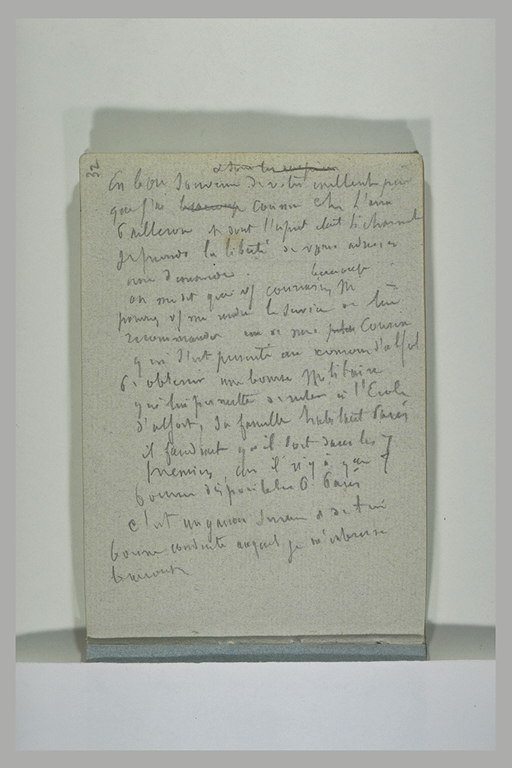 32
En bon souvenir de votre excellent père
que j'ai beaucoup connu chez l'ami
Pailleron et dont l'esprit était si charmant
je prends la liberté de vous adresser
beaucoup
on me dit que vous connaissez M
pourriez vous me rendre le service de lui
recommander un de mes petits cousin
qui s'est présenté au concours d'alfort
d'obtenir une bourse militaire
qui lui permette d'entrer à l'Ecole
d'alfort, sa famille habitant Paris
il faudrait qu'il soit dans les 7
premiers car il n'y a que 7
bourses disponibles à Paris
c'est un garçon sérieux et de très
bonne conduite auquel je m'intéresse
beaucoup